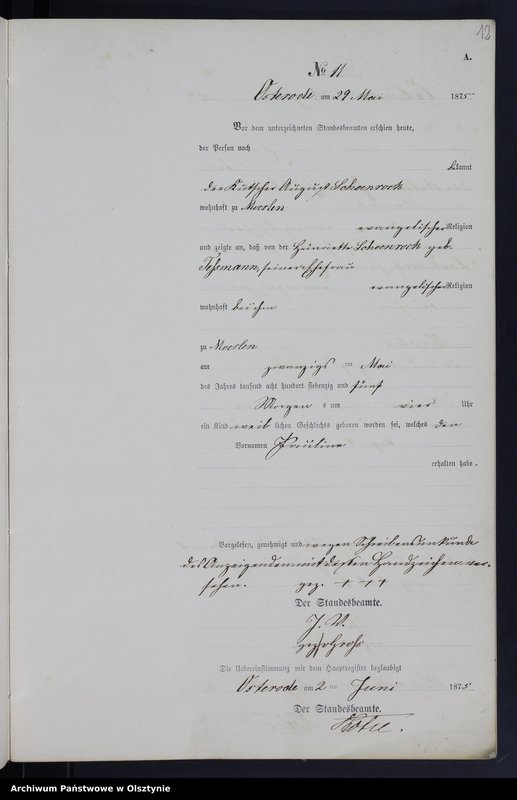 12
A.
No 11
Osterode am 29 Mai 1875
Vor dem unterzeichneten Standesbeamten erschien heute,
der Person nach
kannt
der Kutscher August Schoenrock
wohnhaft zu Moerlen
evangelischer Religion
und zeigte an, daß von der Henriette Schoenrock geb.
seiner Ehefrau
evangelischer Religion
wohnhaft bei ihm
zu Moerlen
am zwanzigs ten Mai
des Jahres tausend acht hundert siebenzig und fünf
Morgens um vier Uhr
ein Kind weiblichen Geschlechts geboren worden sei, welches den
Vornamen Pauline
erhalten habe.
Vorgelesen, genehmigt und wegen Schreibensunkunde
des Anzeigenden mit dessen Handzeichen ver-
sehen. gez. + + +
Der Standesbeamte.
J. V.
Die Uebereinstimmung mit dem Hauptregister beglaubigt
Osterode am 2 ten Juni 1875
Der Standesbeamte.
Archiwum Państwowe w Olsztynie